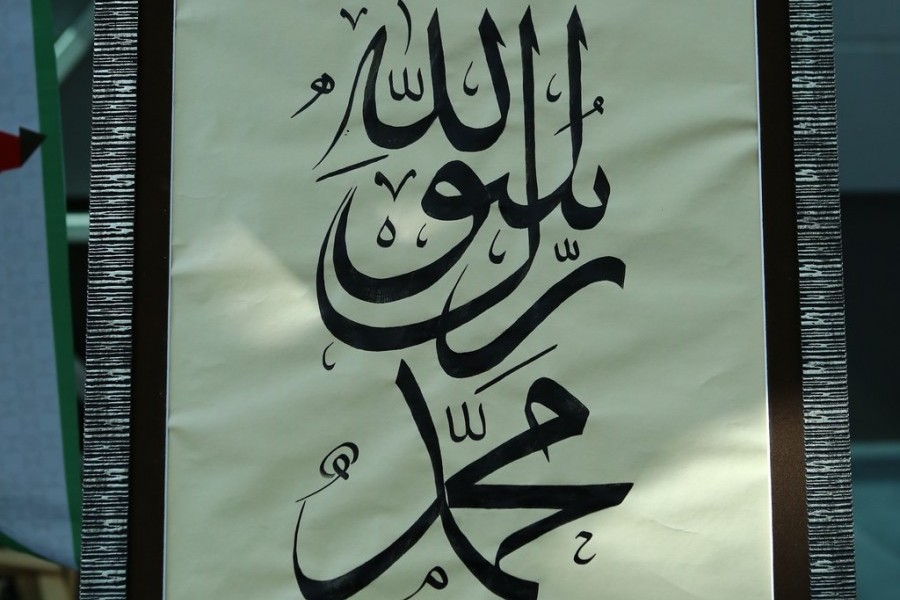 مُحَمَّدٌ
رَّسُولُ
اللَّهِ